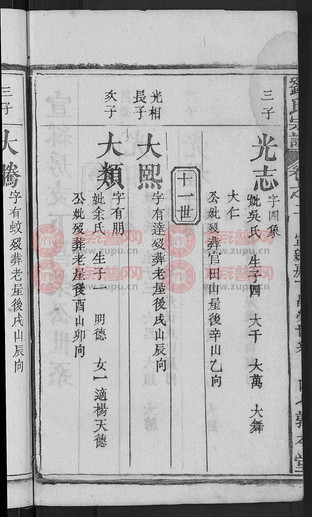 劉氏宗譜
三子
光志
字國像
妣吳氏 生子四 大千 大萬 大舞
大仁
公妣歿葬官田山屋後辛山乙向
十一世
光相
長子
大熙
字有達歿葬老屋後戌山辰向
次子
大類
字有朋
妣余氏 生子一 明德 女一適楊天德
公妣歿葬老屋後酉山卯向
三子
大騰
字有蛟歿葬老屋後戌山辰向